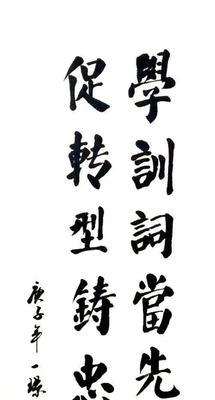 學訓詞當先
促轉型鑄忠
庚子年一